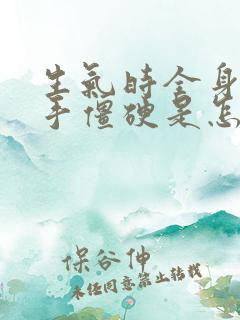 生氣時全身
手僵硬是怎
保谷伸
未经同意禁止转载